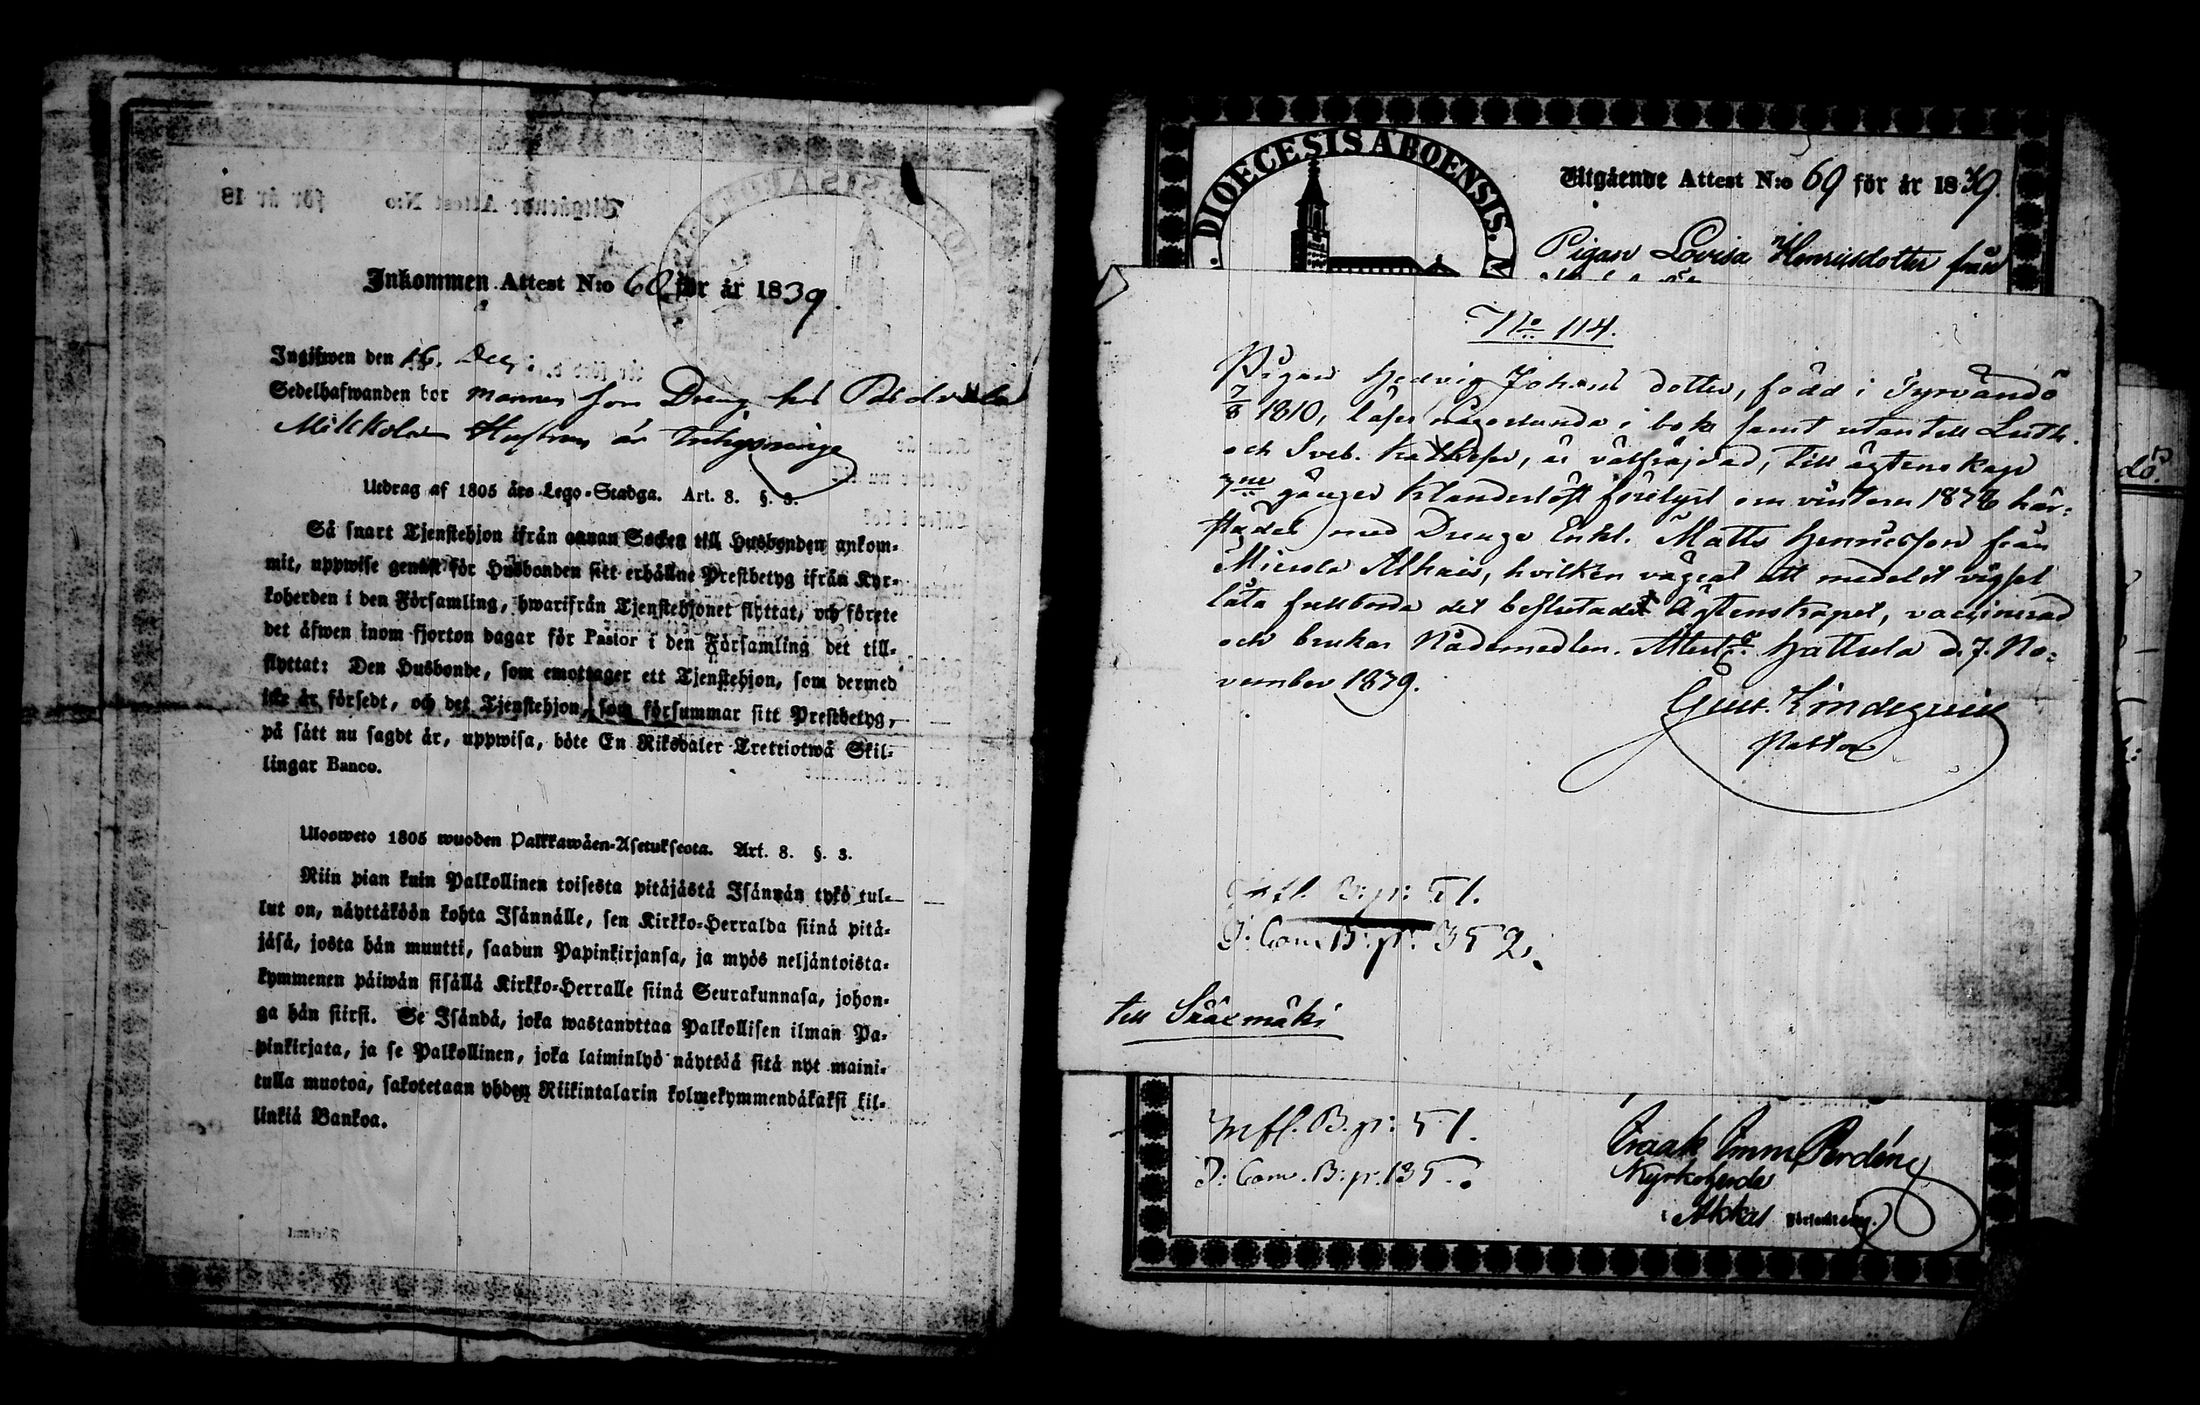 Inkommen Attest N:o 60 för år 1839.
Ingifwen den 16. Dec:
Sedelhafwanden bor mannen som Dreng hos
Mikkola Hustrun är Inhysninge
Utdrag af 1805 års Lego-Stadga. Art. 8. §. 3.
Så snart Tjenstehjon ifrån annan Socken till Husbonden ankom-
mit, uppwise genast för Husbonden sitt erhållne Prestbetyg ifrån Kyr-
koherden i den Församling, hwarifrån Tjenstehjonet flyttat, och förete
det äfwen inom fjorton dagar för Pastor i den Församling det till-
flyttat: Den Husbonde, som emottager ett Tjenstehjon, som dermed
icke är försedt, och det Tjenstehjon, som försummar sitt Prestbetyg,
på sätt nu sagdt är, uppwisa, böte En Riksdaler Trettiotwå Skil-
lingar Banco.
Ulosweto 1805 wuoden Palkkawäen-Asetuksesta. Art. 8. §. 3.
Niin pian kuin Palkollinen toisesta pitäjästä Isännän tykö tul-
lut on, näyttäköön kohta Isännälle, sen Kirkko-Herralda siinä pitä-
jäsä, josta hän muutti, saadun Papinkirjansa, ja myös neljäntoista-
kymmenen päiwän sisällä Kirkko-Herralle siinä Seurakunnasa, johon-
ga hän siirsi. Se Isändä, joka wastanottaa Palkollisen ilman Pa-
pinkirjata, ja se Palkollinen, joka laiminlyö näyttää sitä nyt maini-
tulla muotoa, sakotetaan yhden Riikintalarin kolmekymmendäkaksi kil-
linkiä Bankoa.
DIOECESIS ABOENSIS.
Utgående Attest N:o 69 för år 1839.
Pigan Lovisa Henricsdotter från
No 114.
Pigan Hedvig Johans dotter, född i Tyrvändö
7/8 1810, läser någorlunda i bok samt utantill Luth.
och Sveb. Katkeser, är välfräjdad, till ägtenskap
3ne gånger klanderlöst förelyst om vintern 1836 här-
städes med Drenge Enkl. Matts Henricsson från
Mierola Alhais, hvilken vägrat att medelst vigsel
låta fullborda det beslutade Ägtenskapet, vaccinerad
och brukar Nådemedlen. Attest. Hattula d. 7. No-
vember 1839.
Gust. Lindqvist
Pastor
Infl. B: p: 51.
D: Com. B: p: 352.
till Sääxmäki
Infl. B. p: 51.
D: Com. B: p. 135.
Isaak Imm
Kyrkoherde
i Akkas Församling.